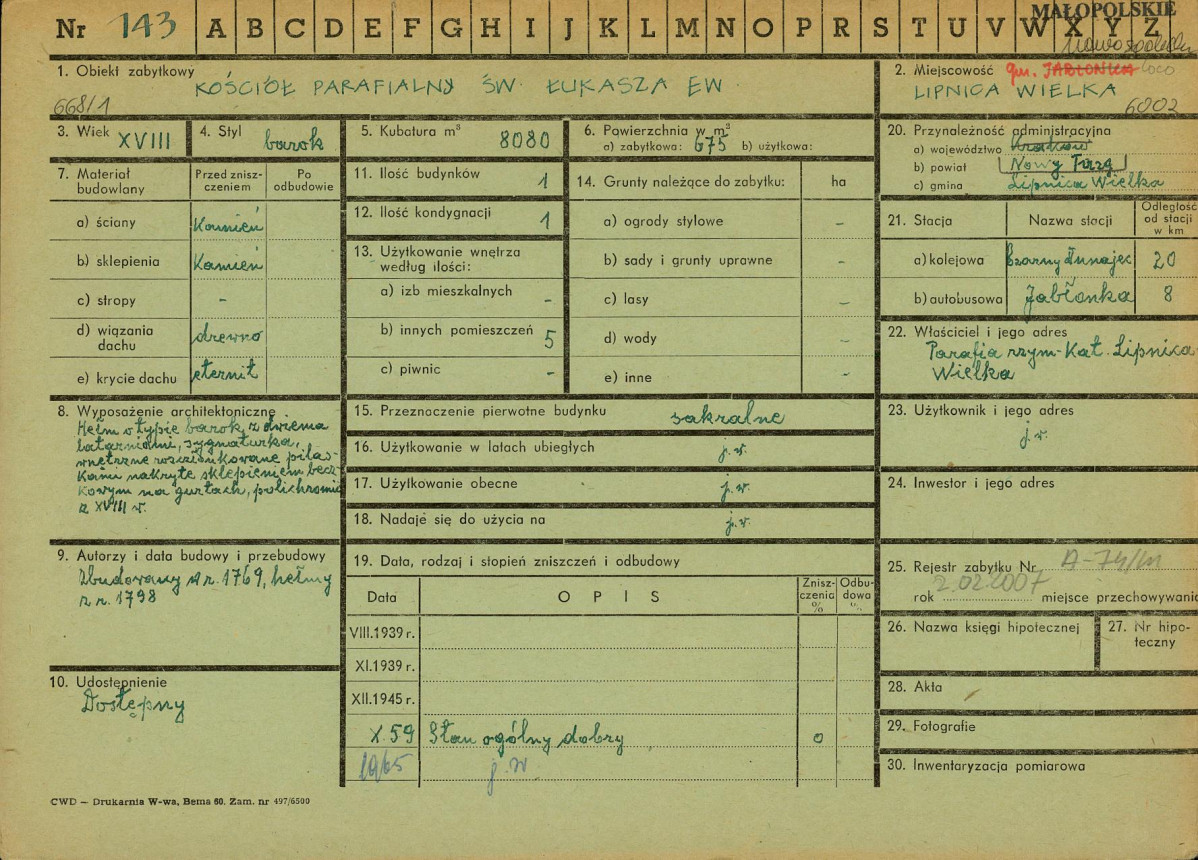 Nr 143 A B C D E F G H I J K L M N O P R S T U V W X Y Z
MAŁOPOLSKIE
1. Obiekt zabytkowy
KOŚCIÓŁ PARAFIALNY ŚW. ŁUKASZA EW.
668/1
2. Miejscowość gm. JABŁONKA loco
LIPNICA WIELKA
6002
3. Wiek XVIII
4. Styl barok
5. Kubatura m³ 8080
6. Powierzchnia w m²
a) zabytkowa: 675 b) użytkowa:
20. Przynależność administracyjna
a) województwo Kraków
b) powiat Nowy Targ
c) gmina Lipnica Wielka
7. Materiał budowlany
Przed znisz-
czeniem
Po
odbudowie
a) ściany Kamień
b) sklepienia Kamień
c) stropy -
d) wiązania
dachu drewno
e) krycie dachu eternit
11. Ilość budynków 1
12. Ilość kondygnacji 1
13. Użytkowanie wnętrza
według ilości:
a) izb mieszkalnych -
b) innych pomieszczeń 5
c) piwnic -
14. Grunty należące do zabytku: ha
a) ogrody stylowe -
b) sady i grunty uprawne -
c) lasy -
d) wody -
e) inne -
21. Stacja Nazwa stacji
Odległość
od stacji
w km
a) kolejowa Czarny Dunajec 20
b) autobusowa Jabłonka 8
22. Właściciel i jego adres
Parafia rzym-Kat. Lipnica
Wielka
8. Wyposażenie architektoniczne
Hełm o typie barok. z dwiema
latarniami, sygnaturka,
wnętrzne rozczłonkowane pilas-
kami nakryte sklepieniem becz-
kowym na gurtach, polichromia
z XVIII w.
15. Przeznaczenie pierwotne budynku sakralne
16. Użytkowanie w latach ubiegłych j.w.
17. Użytkowanie obecne j.w.
18. Nadaje się do użycia na j.w.
23. Użytkownik i jego adres
j.w.
24. Inwestor i jego adres
9. Autorzy i data budowy i przebudowy
Zbudowany w r. 1769, hełmy
z r. 1798
19. Data, rodzaj i stopień zniszczeń i odbudowy
Data OPIS
Znisz-
czenia
%
Odbu-
dowa
%
VIII.1939 r.
XI.1939 r.
XII.1945 r.
X.59 Stan ogólny dobry 0
1965 j.w
25. Rejestr zabytku Nr A-74/M
2.02.2007
rok miejsce przechowywania
26. Nazwa księgi hipotecznej
27. Nr hipo-
teczny
10. Udostępnienie
Dostępny
28. Akta
29. Fotografie
30. Inwentaryzacja pomiarowa
CWD — Drukarnia W-wa, Bema 60. Zam. nr 497/6500